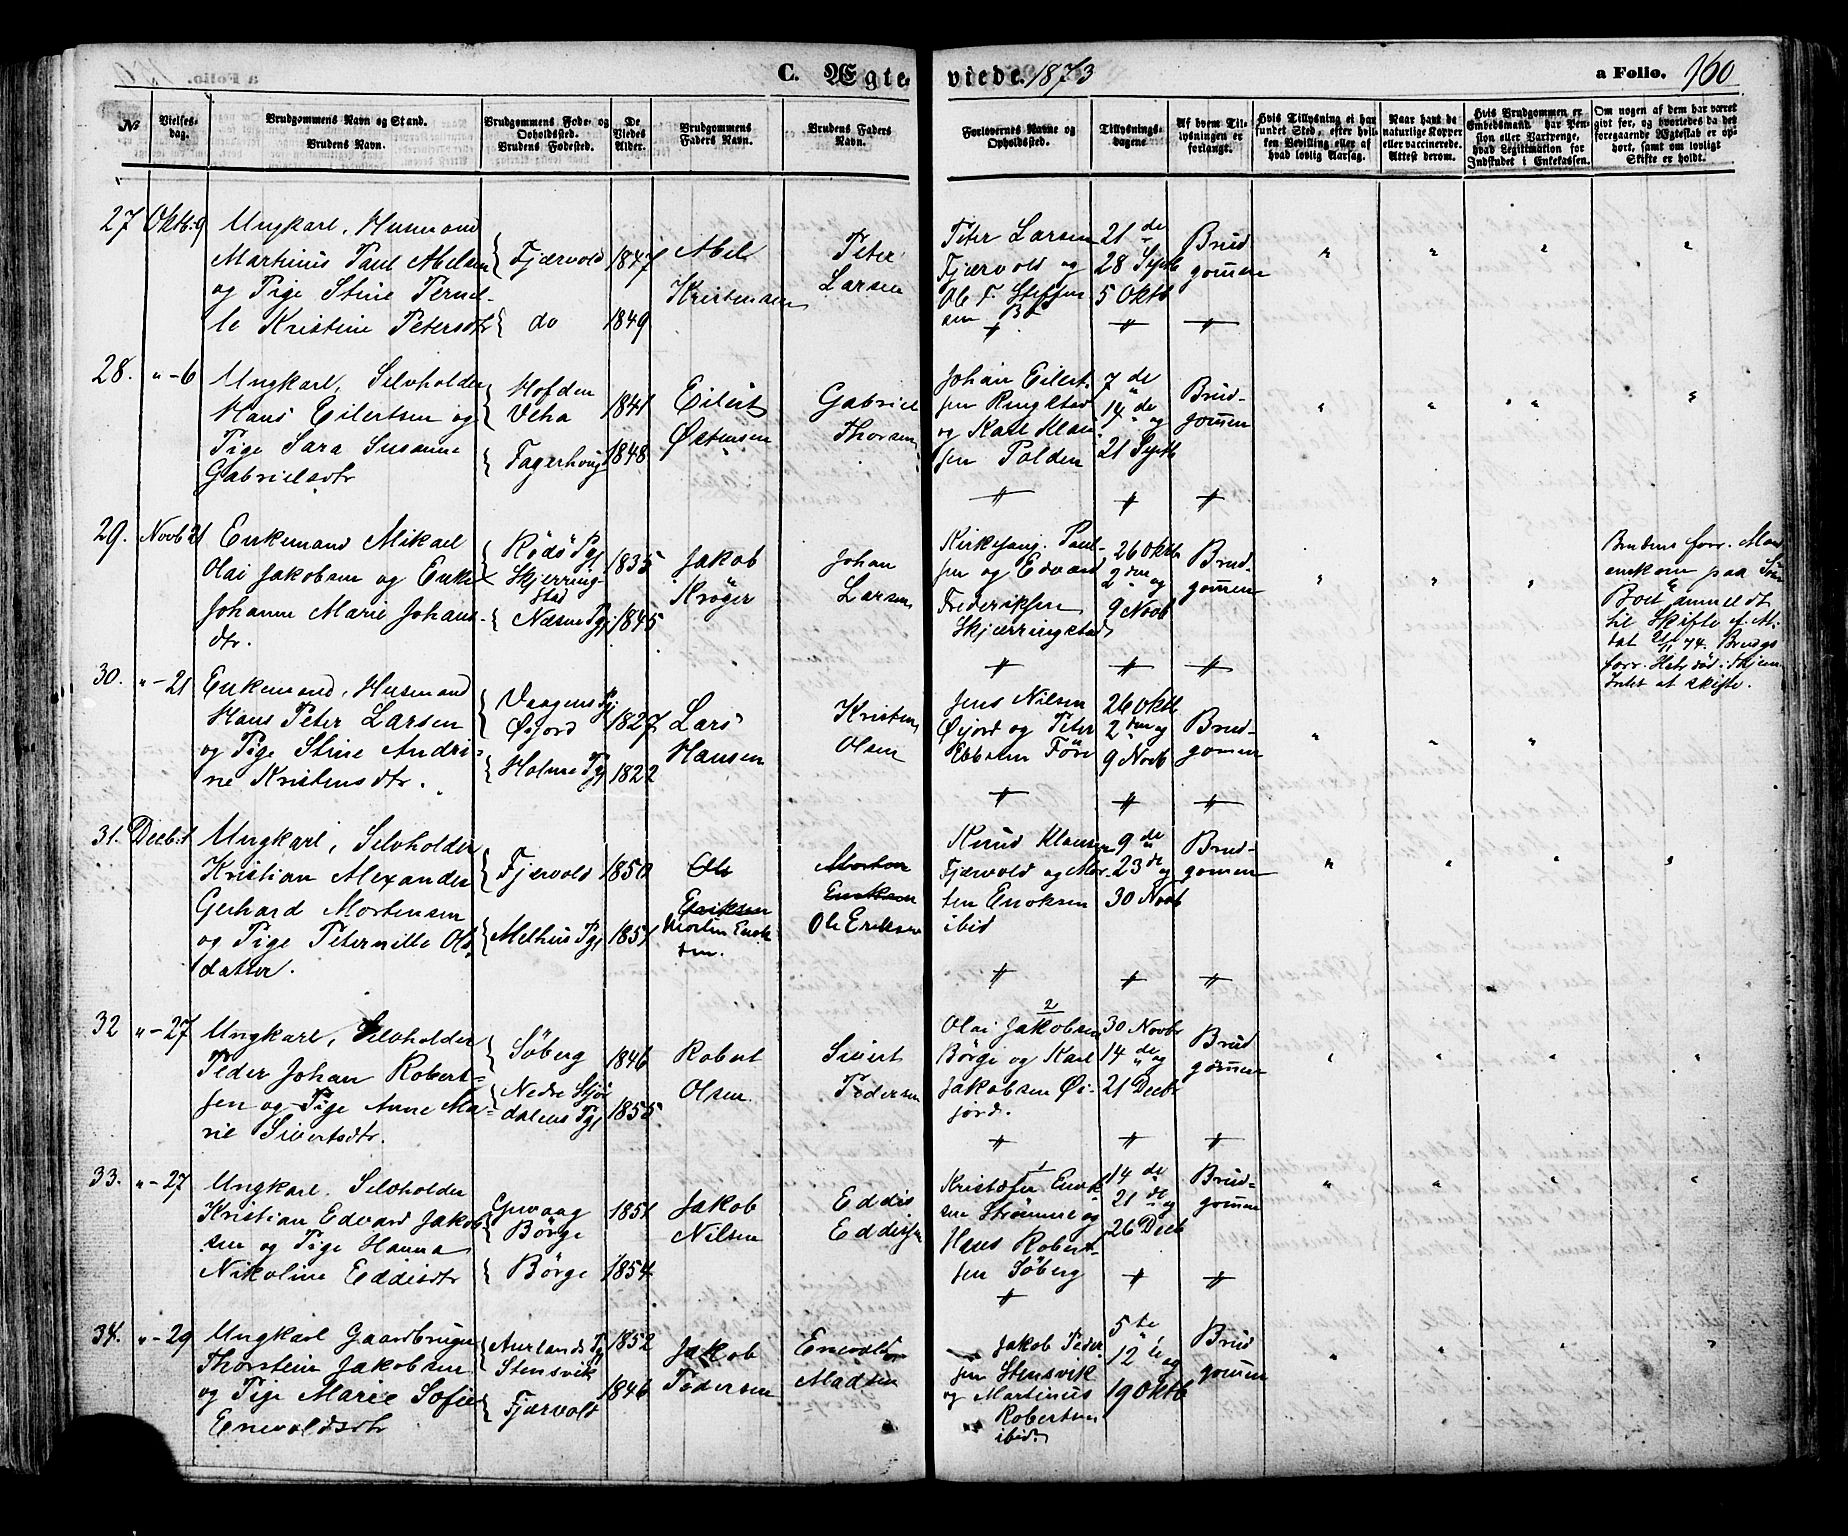 C. Ægte
viede. 1873
a Folio. 160
№
Vielses-
dag.
Brudgommens Navn og Stand.
Brudens Navn.
Brudgommens Føde- og
Opholdssted.
Brudens Fødested.
De
Viedes
Alder.
Brudgommens
Faders Navn.
Brudens Faders
Navn.
Forlovernes Navne og
Opholdssted.
Tillysnings-
dagene
Af hvem Til-
lysningen er
forlangt.
Hvis Tillysning ei har
fundet Sted, efter hvil-
ken Bevilling eller af
hvad lovlig Aarsag.
Naar havt de
naturlige Kopper
eller vaccinerede.
Attest derom.
Hvis Brudgommen er
Embedsmand, har Pen-
sion eller Vartpenge,
hvad Legitimation for
Indskudet i Enkekassen.
Om nogen af dem har været
gift før, og hvorledes da det
foregaaende Ægteskab er op-
hørt, samt om lovligt
Skifte er holdt.
27 Oktb. 9
Ungkarl, Husmand
Martinus Paul Abelsen
og Pige Stine Pernil-
le Kristine Petersdtr
Fjærvold
do
1847
1849
Abel
Kristensen
Peter
Larsen
Peter Larsen
Fjærvold og
Ole T. Steffen-
sen Bø
21 de
28 Septb
5 Oktb
Brud
gommen
28. " - 6
Ungkarl, Selvholder
Hans Eilertsen og
Pige Sara Susanne
Gabrielsdtr
Hofden
Veha
Fagerhaug
1841
1848
Eilert
Østensen
Gabriel
Thorsen
Johan Eilert-
sen Ringstad
og Karl Klau-
sen Polden
7 de
14 de og
21 Septb
Brud-
gommen
29. Novb 21
Enkemand Mikael
Olai Jakobsen og Enke
Johanne Marie Johans-
dtr.
Rødø Pgj
Skjerring-
stad
Næsne Pgj
1835
1845
Jakob
Krøger
Johan
Larsen
Kirkesang. Paul-
sen og Edvard
Frederiksen
Skjærringstad
26 Oktb
2 den og
9 Novb
Brud-
gommen
Brudens forr. Mand
omkom paa Søen
Boet anmeldt
til Skifte
dat 21/11 74. Brudgs
forr.
Intet at skifte.
30. " - 21
Enkemand, Husmand
Hans Peter Larsen
og Pige Stine Andri-
ne Kristensdtr.
Vaagens Pgj
Øifjord
Holme Pgj
1827
1822
Lars
Hansen
Kristen
Olsen
Jens Nilsen
Øijord og Peter
Ebbesen Føre
26 Oktb
2 den og
9 Novb
Brud-
gommen
31. Decb. 1
Ungkarl, Selvholder
Kristian Alexander
Gerhard Mortensen
og Pige Peternille Ols-
datter.
Fjærvold
Melhus Pgj
1850
1851
Ole
Eriksen
Morten Enok-
sen.
Morten
Enoksen
Ole Eriksen
Knud Klausen
Fjærvold og Mor-
ten Enoksen
ibid
9 de
23 de og
30 Novb
Brud-
gommen
32 " - 27
Ungkarl, Selvholder
Peder Johan Robert-
sen og Pige Anne Ma-
rie Sivertsdtr.
Søberg
Nedre Stjør-
dalens Pgj
1846
1855
Robert
Olsen
Sivert
Pedersen
2
Olai Jakobsen
Børge og Karl
Jakobsen Øi-
jord.
30 Novbr
14 de og
21 Decb
Brud
gommen
33. " - 27
Ungkarl, Selvholder
Kristian Edvard Jakob-
sen og Pige Hanna
Nikoline Eddisdtr
Børge
Børge
1851
1854
Jakob
Nilsen
Eddis
Eddissen
1
Kristofer Enok-
sen Strømme og
Hans Robert-
sen Søberg
14 de
21 de og
26 Decb
Brud-
gommen
34. " - 29
Ungkarl Gaardbruger
Thorstein Jakobsen
og Pige Marie Sofie
Enevoldsdtr
Aurlands Pgj
Stensvik
Fjærvold
1852
1846
Jakob
Pedersen
Enevold
Madsen
Jakob Peder-
sen Stensvik
og Martinus
Robertsen
ibid.
5 te
12 te og
19 Oktb
Brud
gommen